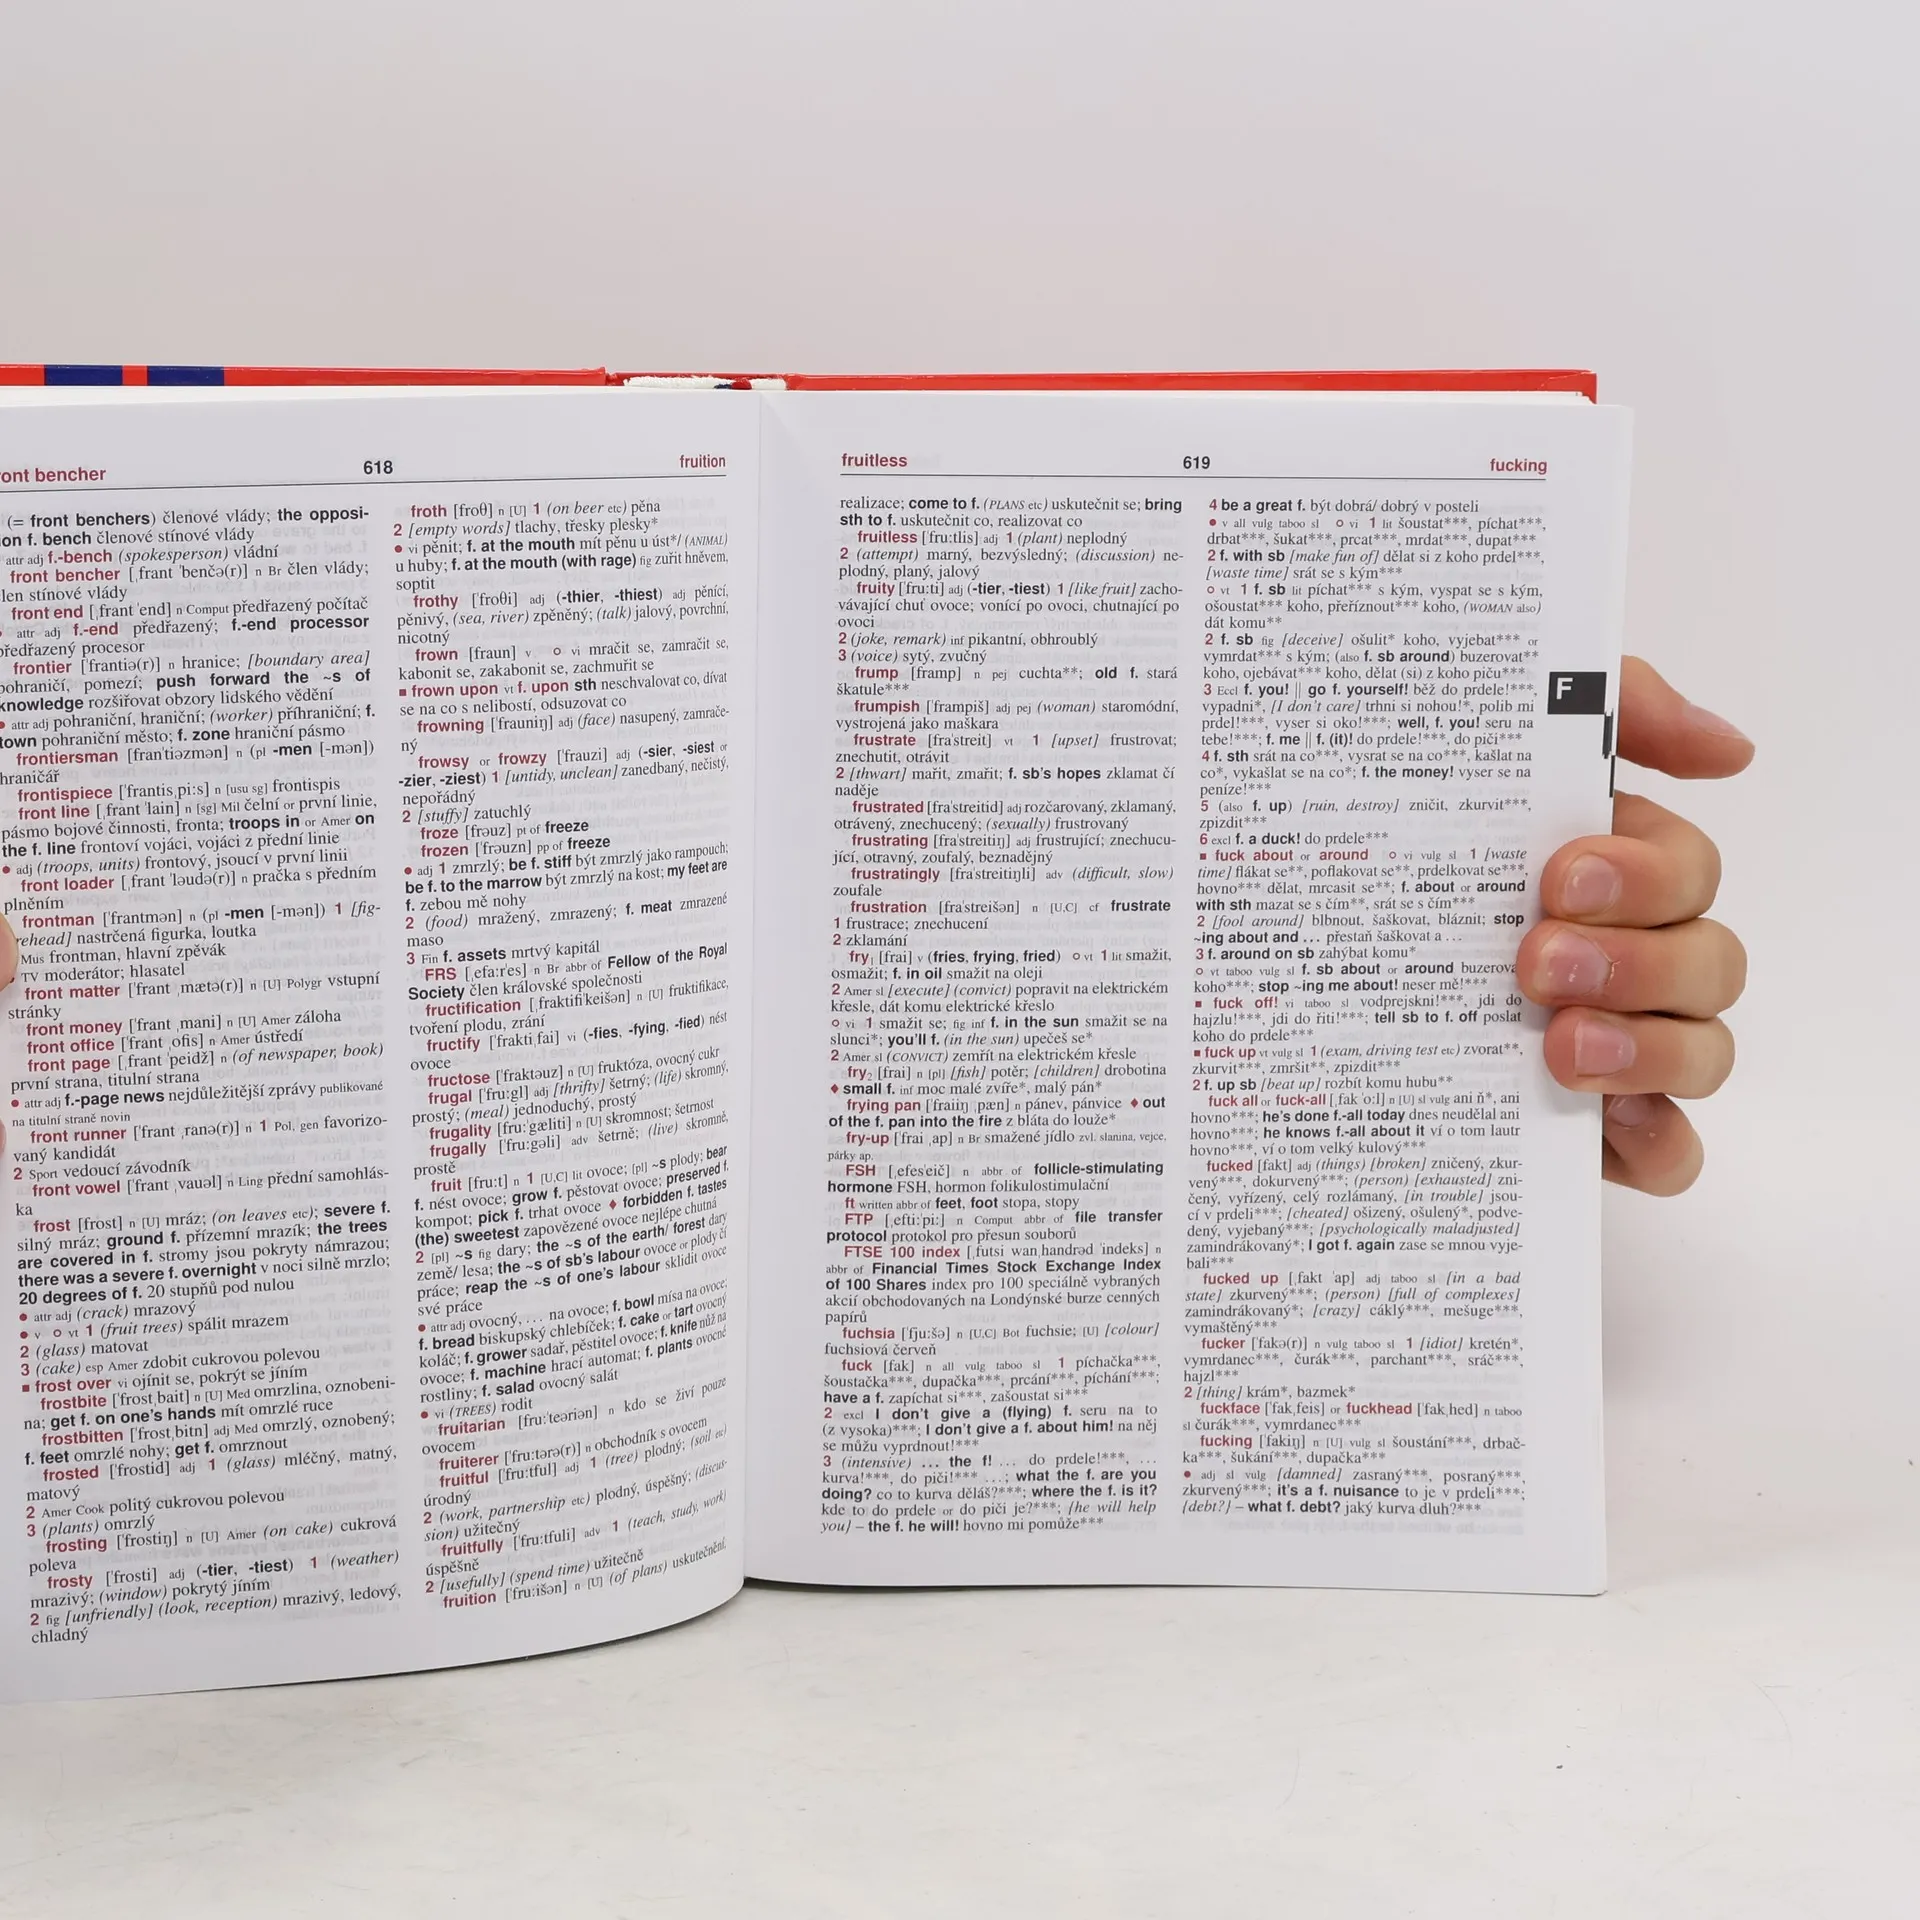 ront bencher 618 fruition
(= front benchers) členové vlády; the opposi-
ion f. bench členové stínové vlády
attr adj f.-bench (spokesperson) vládní
front bencher [ˌfrant ˈbenčə(r)] n Br člen vlády;
len stínové vlády
front end [ˌfrant ˈend] n Comput předřazený počítač
● attr adj f.-end předřazený; f.-end processor
předřazený procesor
frontier [ˈfrantiə(r)] n hranice; [boundary area]
pohraničí, pomezí; push forward the ~s of
knowledge rozšiřovat obzory lidského vědění
● attr adj pohraniční, hraniční; (worker) příhraniční; f.
town pohraniční město; f. zone hraniční pásmo
frontiersman [franˈtiəzmən] n (pl -men [-mən])
hraničář
frontispiece [ˈfrantisˌpi:s] n [usu sg] frontispis
front line [ˌfrant ˈlain] n [sg] Mil čelní or první linie,
pásmo bojové činnosti, fronta; troops in or Amer on
the f. line frontoví vojáci, vojáci z přední linie
● adj (troops, units) frontový, jsoucí v první linii
front loader [ˌfrant ˈləudə(r)] n pračka s předním
plněním
frontman [ˈfrantmən] n (pl -men [-mən]) 1 [fig-
rehead] nastrčená figurka, loutka
Mus frontman, hlavní zpěvák
TV moderátor; hlasatel
front matter [ˈfrant ˌmætə(r)] n [U] Polygr vstupní
stránky
front money [ˈfrant ˌmani] n [U] Amer záloha
front office [ˈfrant ˌofis] n Amer ústředí
front page [ˌfrant ˈpeidž] n (of newspaper, book)
první strana, titulní strana
● attr adj f.-page news nejdůležitější zprávy publikované
na titulní straně novin
front runner [ˈfrant ˌranə(r)] n 1 Pol, gen favorizo-
vaný kandidát
2 Sport vedoucí závodník
front vowel [ˈfrant ˌvauəl] n Ling přední samohlás-
ka
frost [frost] n [U] mráz; (on leaves etc); severe f.
silný mráz; ground f. přízemní mrazík; the trees
are covered in f. stromy jsou pokryty námrazou;
there was a severe f. overnight v noci silně mrzlo;
20 degrees of f. 20 stupňů pod nulou
● attr adj (crack) mrazový
● v ○ vt 1 (fruit trees) spálit mrazem
2 (glass) matovat
3 (cake) esp Amer zdobit cukrovou polevou
■ frost over vi ojínit se, pokrýt se jíním
frostbite [ˈfrostˌbait] n [U] Med omrzlina, oznobeni-
na; get f. on one's hands mít omrzlé ruce
frostbitten [ˈfrostˌbitn] adj Med omrzlý, oznobený;
f. feet omrzlé nohy; get f. omrznout
frosted [ˈfrostid] adj 1 (glass) mléčný, matný,
matový
2 Amer Cook politý cukrovou polevou
3 (plants) omrzlý
frosting [ˈfrostiŋ] n [U] Amer (on cake) cukrová
poleva
frosty [ˈfrosti] adj (-tier, -tiest) 1 (weather)
mrazivý; (window) pokrytý jíním
2 fig [unfriendly] (look, reception) mrazivý, ledový,
chladný
froth [froθ] n [U] 1 (on beer etc) pěna
2 [empty words] tlachy, třesky plesky*
● vi pěnit; f. at the mouth mít pěnu u úst*/ (ANIMAL)
u huby; f. at the mouth (with rage) fig zuřit hněvem,
soptit
frothy [ˈfroθi] adj (-thier, -thiest) adj pěnící,
pěnivý, (sea, river) zpěněný; (talk) jalový, povrchní,
nicotný
frown [fraun] v ○ vi mračit se, zamračit se,
kabonit se, zakabonit se, zachmuřit se
■ frown upon vt f. upon sth neschvalovat co, dívat
se na co s nelibostí, odsuzovat co
frowning [ˈfrauniŋ] adj (face) nasupený, zamrače-
ný
frowsy or frowzy [ˈfrauzi] adj (-sier, -siest or
-zier, -ziest) 1 [untidy, unclean] zanedbaný, nečistý,
nepořádný
2 [stuffy] zatuchlý
froze [frəuz] pt of freeze
frozen [ˈfrəuzn] pp of freeze
● adj 1 zmrzlý; be f. stiff být zmrzlý jako rampouch;
be f. to the marrow být zmrzlý na kost; my feet are
f. zebou mě nohy
2 (food) mražený, zmrazený; f. meat zmrazené
maso
3 Fin f. assets mrtvý kapitál
FRS [ˌefa:rˈes] n Br abbr of Fellow of the Royal
Society člen královské společnosti
fructification [ˌfraktifiˈkeišən] n [U] fruktifikace,
tvoření plodu, zrání
fructify [ˈfraktiˌfai] vi (-fies, -fying, -fied) nést
ovoce
fructose [ˈfraktəuz] n [U] fruktóza, ovocný cukr
frugal [ˈfru:gl] adj [thrifty] šetrný; (life) skromný,
prostý; (meal) jednoduchý, prostý
frugality [fru:ˈgæliti] n [U] skromnost; šetrnost
frugally [ˈfru:gəli] adv šetrně; (live) skromně,
prostě
fruit [fru:t] n 1 [U,C] lit ovoce; [pl] ~s plody; bear
f. nést ovoce; grow f. pěstovat ovoce; preserved f.
kompot; pick f. trhat ovoce ♦ forbidden f. tastes
(the) sweetest zapovězené ovoce nejlépe chutná
2 [pl] ~s fig dary; the ~s of the earth/ forest dary
země/ lesa; the ~s of sb's labour ovoce or plody čí
práce; reap the ~s of one's labour sklidit ovoce
své práce
● attr adj ovocný, ... na ovoce; f. bowl mísa na ovoce;
f. bread biskupský chlebíček; f. cake or tart ovocný
koláč; f. grower sadař, pěstitel ovoce; f. knife nůž na
ovoce; f. machine hrací automat; f. plants ovocné
rostliny; f. salad ovocný salát
● vi (TREES) rodit
fruitarian [fru:ˈteəriən] n kdo se živí pouze
ovocem
fruiterer [ˈfru:tərə(r)] n obchodník s ovocem
fruitful [ˈfru:tful] adj 1 (tree) plodný; (soil etc)
úrodný
2 (work, partnership etc) plodný, úspěšný; (discus-
sion) užitečný
fruitfully [ˈfru:tfuli] adv 1 (teach, study, work)
úspěšně
2 [usefully] (spend time) užitečně
fruition [ˈfru:išən] n [U] (of plans) uskutečnění,
fruitless 619 fucking
realizace; come to f. (PLANS etc) uskutečnit se; bring
sth to f. uskutečnit co, realizovat co
fruitless [ˈfru:tlis] adj 1 (plant) neplodný
2 (attempt) marný, bezvýsledný; (discussion) ne-
plodný, planý, jalový
fruity [ˈfru:ti] adj (-tier, -tiest) 1 [like fruit] zacho-
vávající chuť ovoce; vonící po ovoci, chutnající po
ovoci
2 (joke, remark) inf pikantní, obhroublý
3 (voice) sytý, zvučný
frump [framp] n pej cuchta**; old f. stará
škatule***
frumpish [ˈframpiš] adj pej (woman) staromódní,
vystrojená jako maškara
frustrate [fraˈstreit] vt 1 [upset] frustrovat;
znechutit, otrávit
2 [thwart] mařit, zmařit; f. sb's hopes zklamat čí
naděje
frustrated [fraˈstreitid] adj rozčarovaný, zklamaný,
otrávený, znechucený; (sexually) frustrovaný
frustrating [fraˈstreitiŋ] adj frustrující; znechucu-
jící, otravný, zoufalý, beznadějný
frustratingly [fraˈstreitiŋli] adv (difficult, slow)
zoufale
frustration [fraˈstreišən] n [U,C] cf frustrate
1 frustrace; znechucení
2 zklamání
fry₁ [frai] v (fries, frying, fried) ○ vt 1 lit smažit,
osmažit; f. in oil smažit na oleji
2 Amer sl [execute] (convict) popravit na elektrickém
křesle, dát komu elektrické křeslo
○ vi 1 smažit se; fig inf f. in the sun smažit se na
slunci*; you'll f. (in the sun) upečeš se*
2 Amer sl (CONVICT) zemřít na elektrickém křesle
fry₂ [frai] n [pl] [fish] potěr; [children] drobotina
♦ small f. inf moc malé zvíře*, malý pán*
frying pan [ˈfraiiŋ ˌpæn] n pánev, pánvice ♦ out
of the f. pan into the fire z bláta do louže*
fry-up [ˈfrai ˌap] n Br smažené jídlo zvl. slanina, vejce,
párky ap.
FSH [ˌefesˈeič] n abbr of follicle-stimulating
hormone FSH, hormon folikulostimulační
ft written abbr of feet, foot stopa, stopy
FTP [ˌefti:ˈpi:] n Comput abbr of file transfer
protocol protokol pro přesun souborů
FTSE 100 index [ˌfutsi wanˌhandrəd ˈindeks] n
abbr of Financial Times Stock Exchange Index
of 100 Shares index pro 100 speciálně vybraných
akcií obchodovaných na Londýnské burze cenných
papírů
fuchsia [ˈfju:šə] n [U,C] Bot fuchsie; [U] [colour]
fuchsiová červeň
fuck [fak] n all vulg taboo sl 1 píchačka***,
šoustačka***, dupačka***, prcání***, píchání***;
have a f. zapíchat si***, zašoustat si***
2 excl I don't give a (flying) f. seru na to
(z vysoka)***; I don't give a f. about him! na něj
se můžu vyprdnout!***
3 (intensive) ... the f! ... do prdele!***, ...
kurva!***, do piči!*** ...; what the f. are you
doing? co to kurva děláš?***; where the f. is it?
kde to do prdele or do piči je?***; [he will help
you] – the f. he will! hovno mi pomůže***
4 be a great f. být dobrá/ dobrý v posteli
● v all vulg taboo sl ○ vi 1 lit šoustat***, píchat***,
drbat***, šukat***, prcat***, mrdat***, dupat***
2 f. with sb [make fun of] dělat si z koho prdel***,
[waste time] srát se s kým***
○ vt 1 f. sb lit píchat*** s kým, vyspat se s kým,
ošoustat*** koho, přeříznout*** koho, (WOMAN also)
dát komu**
2 f. sb fig [deceive] ošulit* koho, vyjebat*** or
vymrdat*** s kým; (also f. sb around) buzerovat**
koho, ojebávat*** koho, dělat (si) z koho piču***
3 Excl f. you! || go f. yourself! běž do prdele!***,
vypadni*, [I don't care] trhni si nohou!*, polib mi
prdel!***, vyser si oko!***; well, f. you! seru na
tebe!***; f. me || f. (it)! do prdele!***, do piči***
4 f. sth srát na co***, vysrat se na co***, kašlat na
co*, vykašlat se na co*; f. the money! vyser se na
peníze!***
5 (also f. up) [ruin, destroy] zničit, zkurvit***,
zpizdit***
6 excl f. a duck! do prdele***
■ fuck about or around ○ vi vulg sl 1 [waste
time] flákat se**, poflakovat se**, prdelkovat se***,
hovno*** dělat, mrcasit se**; f. about or around
with sth mazat se s čím**, srát se s čím***
2 [fool around] blbnout, šaškovat, bláznit; stop
~ing about and ... přestaň šaškovat a ...
3 f. around on sb zahýbat komu*
○ vt taboo vulg sl f. sb about or around buzerova
koho***; stop ~ing me about! neser mě!***
■ fuck off! vi taboo sl vodprejskni!***, jdi do
hajzlu!***, jdi do řiti!***; tell sb to f. off poslat
koho do prdele***
■ fuck up vt vulg sl 1 (exam, driving test etc) zvorat**,
zkurvit***, zmršit**, zpizdit***
2 f. up sb [beat up] rozbít komu hubu**
fuck all or fuck-all [ˌfak ˈo:l] n [U] sl vulg ani ň*, ani
hovno***; he's done f.-all today dnes neudělal ani
hovno***; he knows f.-all about it ví o tom lautr
hovno***, ví o tom velký kulový***
fucked [fakt] adj (things) [broken] zničený, zkur-
vený***, dokurvený***; (person) [exhausted] zni-
čený, vyřízený, celý rozlámaný, [in trouble] jsou-
cí v prdeli***; [cheated] ošizený, ošulený*, podve-
dený, vyjebaný***; [psychologically maladjusted]
zamindrákovaný*; I got f. again zase se mnou vyje-
bali***
fucked up [ˌfakt ˈap] adj taboo sl [in a bad
state] zkurvený***; (person) [full of complexes]
zamindrákovaný*; [crazy] cáklý***, mešuge***,
vymaštěný***
fucker [ˈfakə(r)] n vulg taboo sl 1 [idiot] kretén*,
vymrdanec***, čurák***, parchant***, sráč***,
hajzl***
2 [thing] krám*, bazmek*
fuckface [ˈfakˌfeis] or fuckhead [ˈfakˌhed] n taboo
sl čurák***, vymrdanec***
fucking [ˈfakiŋ] n [U] vulg sl šoustání***, drbač-
ka***, šukání***, dupačka***
● adj sl vulg [damned] zasraný***, posraný***,
zkurvený***; it's a f. nuisance to je v prdeli***;
[debt?] – what f. debt? jaký kurva dluh?***
F